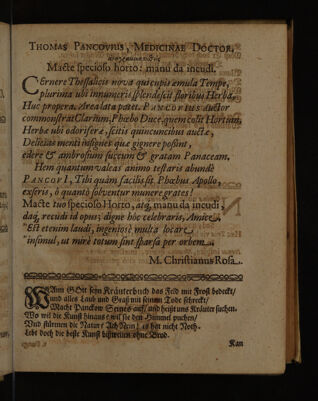 THOMAS PANCOVIUS, MEDICINÆ DOCTOR,
Macte specioso horto: manu da incudi.
CErnere Thessalicis nova qui cupis æmula Tempe,
plurima ubi innumeris splendescit floribus Herba,
Huc propera. Area lata patet. PANCOVIUS Auctor
commonstrat Clarium, Phœbo Duce, quem colit Hortum,
Herbæ ubi odoriferæ, scitis quincuncibus auctæ,
Delicias menti insigues quæ gignere possint,
edere & ambrosium succum & gratam Panaceam.
Hem quantum valeas animo testaris abundè
PANCOVI, Tibi quàm facilis sit Phœbus Apollo,
exseris, ô quantò solvuntur munere grates!
Macte tuo specioso Horto, atq; manu da incudi
daq; recudi id opus; dignè hôc celebraris, Amice,
Est etenim laudi, ingeniosè multa locare
insimul, ut mirè totum sint sparsa per orbem.
M. Christianus Rosa.
WAnn GOtt sein Kräuterbuch das Feld mit Frost bedeckt/
und alles Laub und Graß mit seinem Tode schreckt/
Macht Panckow Seines auf/ und heist uns Kräuter suchen.
Wo wil die Kunst hinaus? wil sie den Himmel puchen/
Und stürmen die Natur? Ach Nein! es hat nicht Noth.
Lebt doch die beste Kunst bißweilen ohne Brod.
Kan